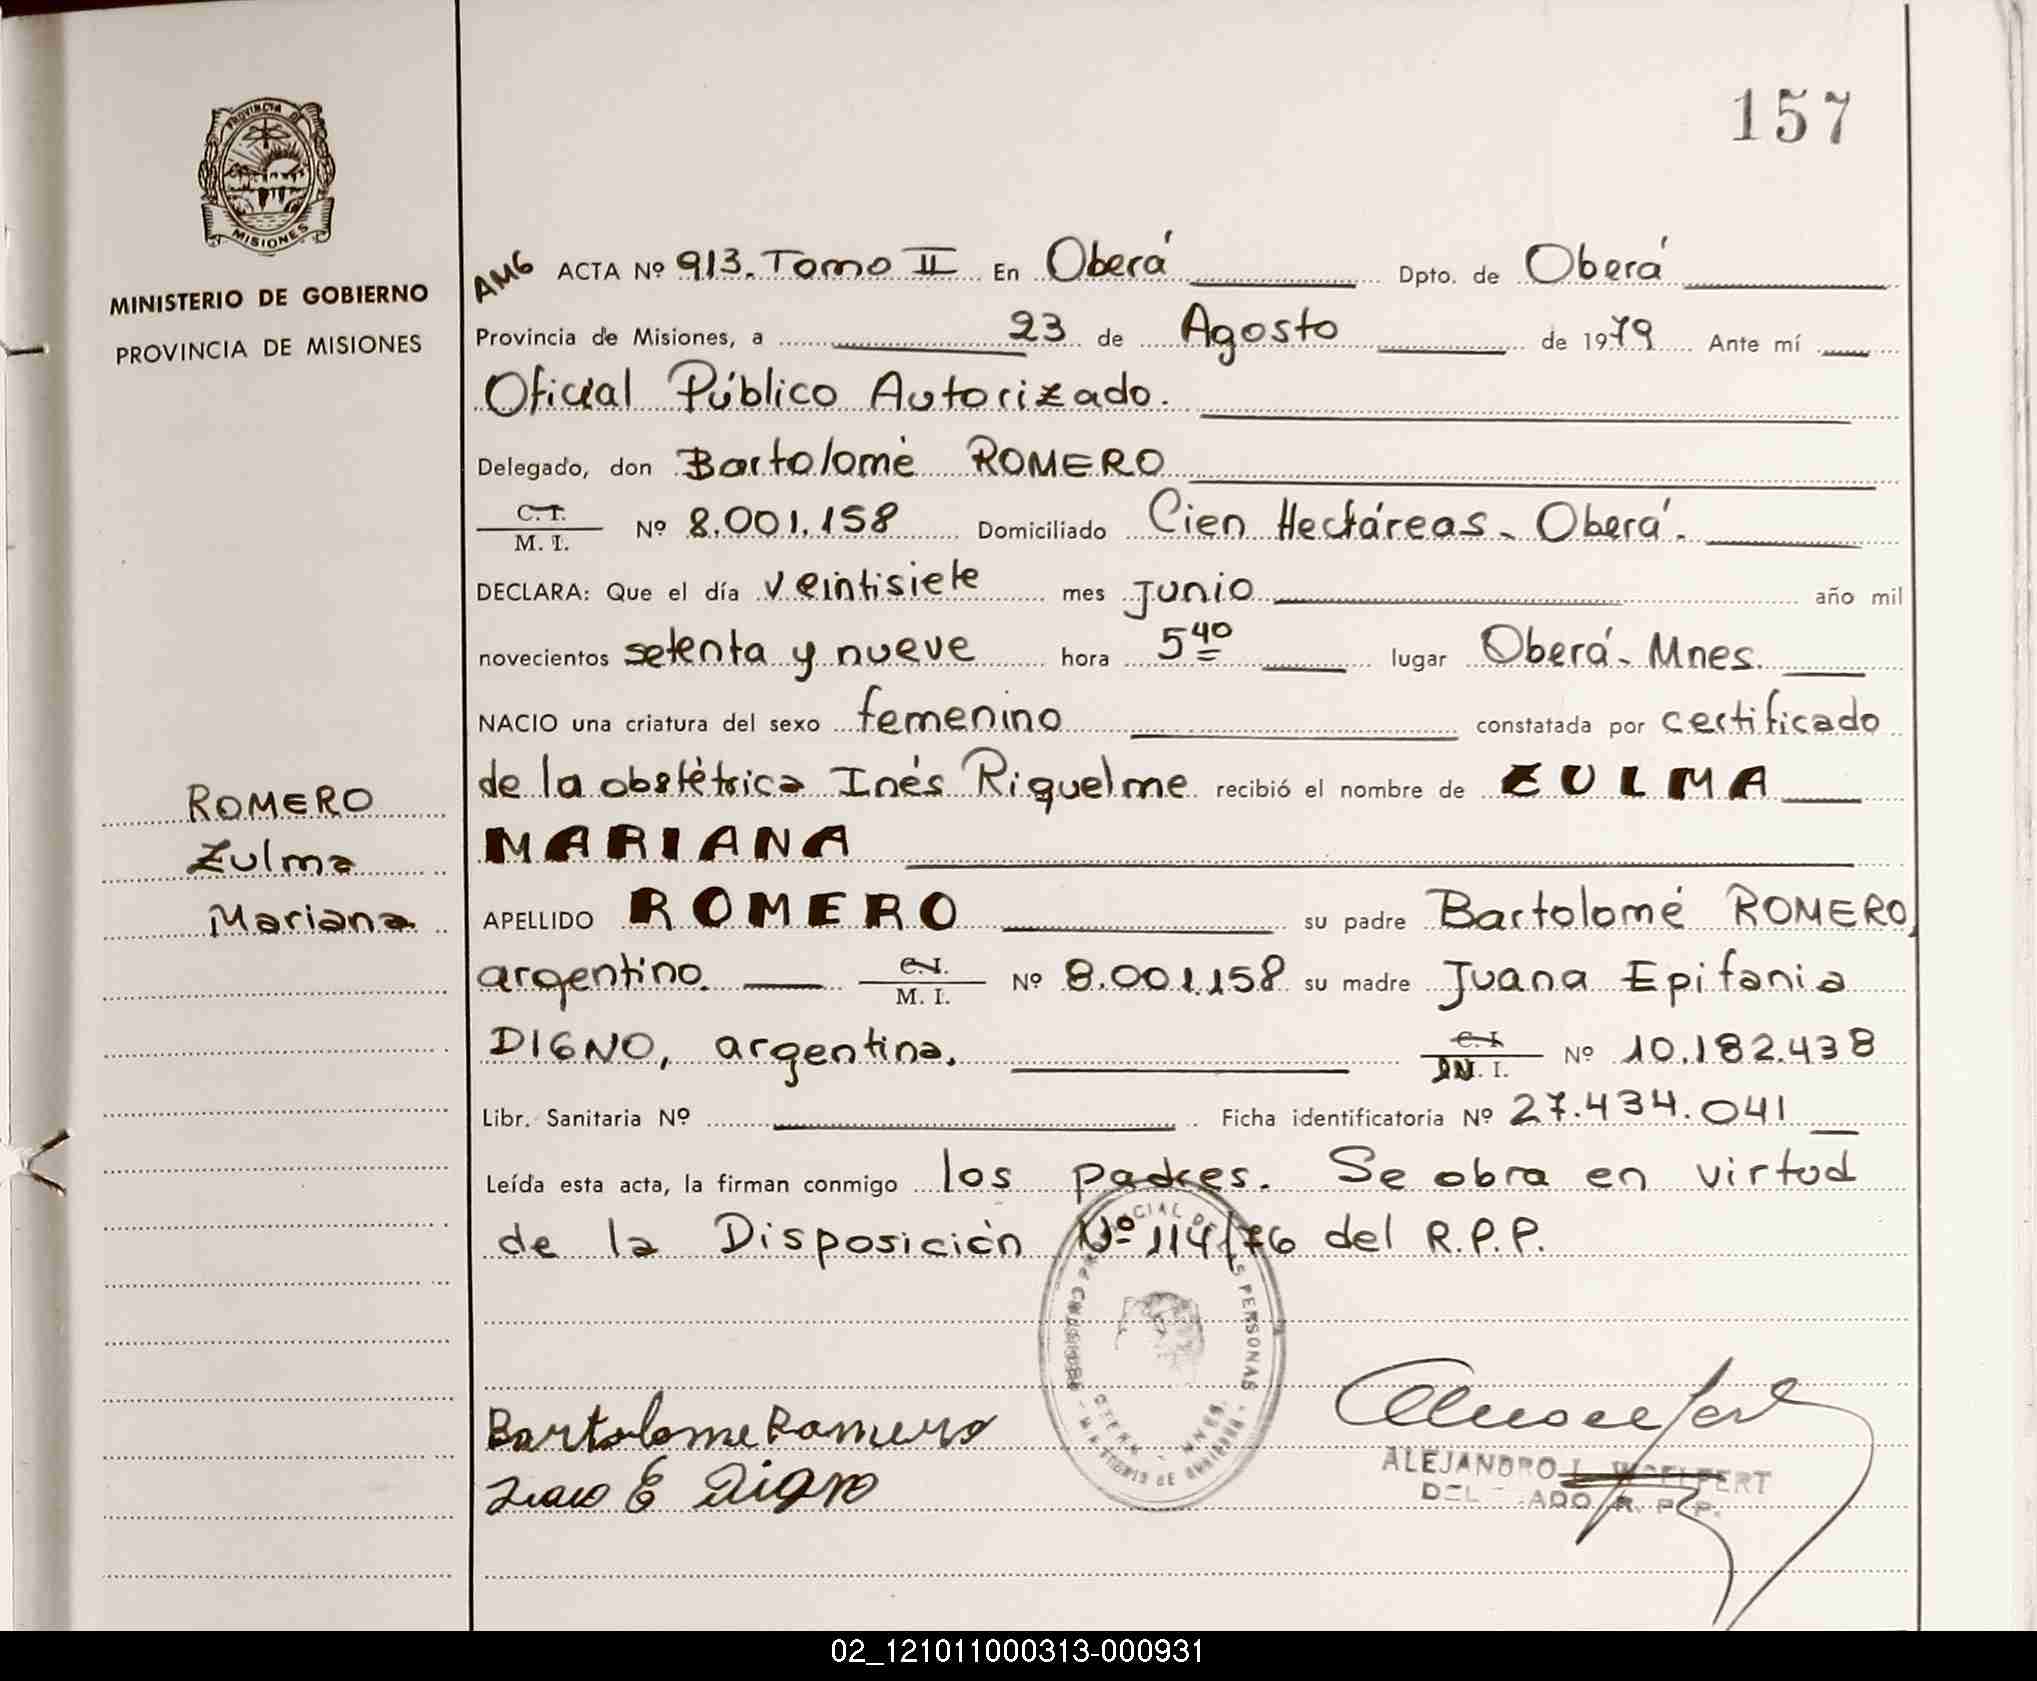 157
PROVINCIA DE
MISIONES
MINISTERIO DE GOBIERNO
PROVINCIA DE MISIONES
ROMERO
Zulma
Mariana
AMG ACTA Nº 913. Tomo II En Oberá Dpto. de Oberá
Provincia de Misiones, a 23 de Agosto de 1979 Ante mí
Oficial Público Autorizado.
Delegado, don Bartolomé ROMERO
C. I. / M. I. Nº 8.001.158 Domiciliado Cien Hectáreas - Oberá.
DECLARA: Que el día veintisiete mes junio año mil
novecientos setenta y nueve hora 5 40 lugar Oberá - Mnes.
NACIO una criatura del sexo femenino constatada por certificado
de la obstétrica Inés Riquelme recibió el nombre de ZULMA
MARIANA
APELLIDO ROMERO su padre Bartolomé ROMERO,
argentino. C. I. / M. I. Nº 8.001.158 su madre Juana Epifania
DIGNO, argentina. C. I. / DN. I. Nº 10.182.438
Libr. Sanitaria Nº Ficha identificatoria Nº 27.434.041
Leída esta acta, la firman conmigo los padres. Se obra en virtud
de la Disposición Nº 114/76 del R.P.P.
PROVINCIAL DE LAS PERSONAS
Bartolome Romero
Juana E Digno
ALEJANDRO L. WOELFERT
DELEGADO R. P. P.
02_121011000313-000931